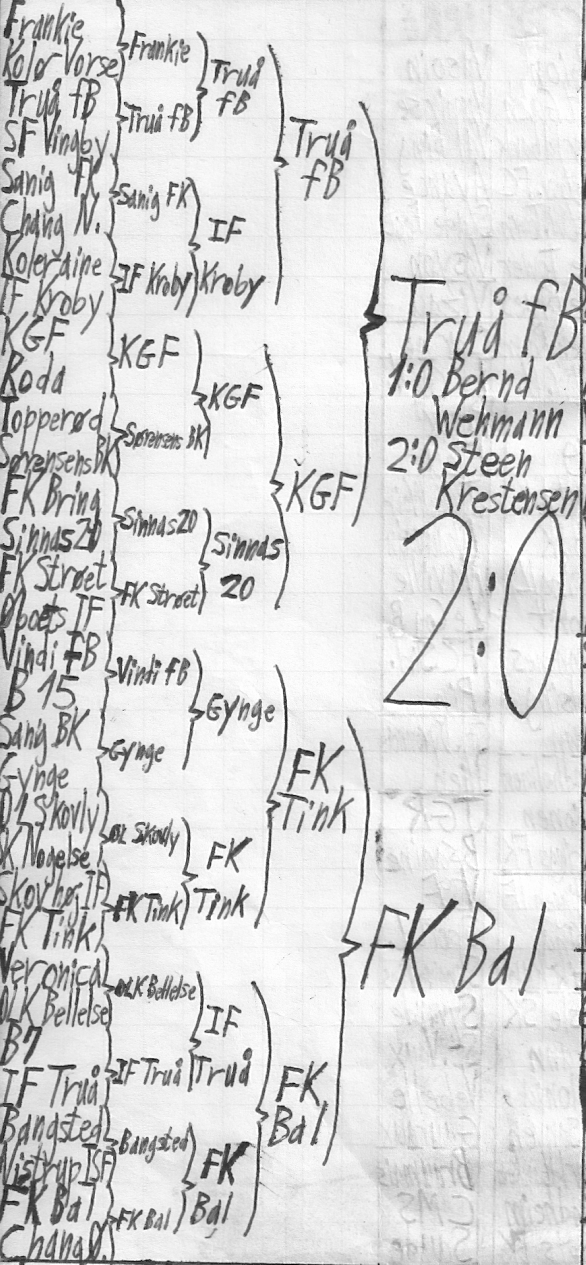 Frankie
Kolør Vorse
Truå fB
SF Vingby
Sanig FK
Chang N.
Koleraine
IF Kroby
KGF
Koda
Topperød
Sørensens BK
FK Bring
Sinnas 20
FK Strøet
IF
Vindi FB
B 15
Sanig BK
Gynge
ØL Skovly
SK Nøgelse
Skovhøj IF
FK Tink
Veronica
ØLK Bellelse
B7
IF Truå
Bangsted
Nistrup ISF
FK Bal
Chang Ø.
Frankie
Truå fB
Sanig FK
IF Kroby
KGF
Sørensens BK
Sinnas 20
FK Strøet
Vindi fB
Gynge
ØL Skovly
FK Tink
ØLK Bellelse
IF Truå
Bangsted
FK Bal
Truå
fB
IF
Kroby
KGF
Sinnas
20
Gynge
FK
Tink
IF
Truå
FK
Bal
Truå
fB
KGF
FK
Tink
FK
Bal
Truå fB
1:0 Bernd
Wehmann
2:0 Steen
Krestensen
2:0
FK Bal